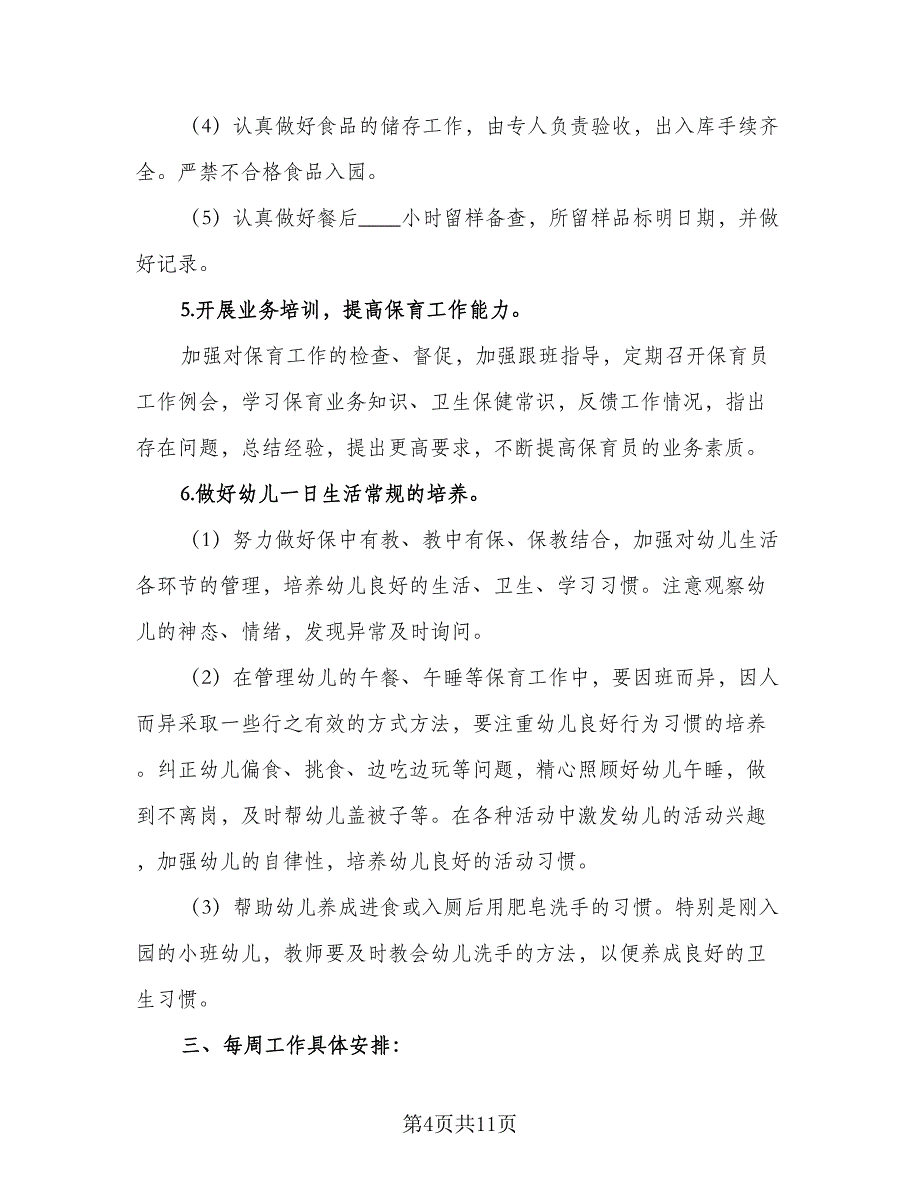 （4）认真做好食品的储存工作，由专人负责验收，出入库手续齐
全。严禁不合格食品入园。
（5）认真做好餐后____小时留样备查，所留样品标明日期，并做
好记录。
5.开展业务培训，提高保育工作能力。
加强对保育工作的检查、督促，加强跟班指导，定期召开保育员
工作例会，学习保育业务知识、卫生保健常识，反馈工作情况，指出
存在问题，总结经验，提出更高要求，不断提高保育员的业务素质。
6.做好幼儿一日生活常规的培养。
（1）努力做好保中有教、教中有保、保教结合，加强对幼儿生活
各环节的管理，培养幼儿良好的生活、卫生、学习习惯。注意观察幼
儿的神态、情绪，发现异常及时询问。
（2）在管理幼儿的午餐、午睡等保育工作中，要因班而异，因人
而异采取一些行之有效的方式方法，要注重幼儿良好行为习惯的培养
。纠正幼儿偏食、挑食、边吃边玩等问题，精心照顾好幼儿午睡，做
到不离岗，及时帮幼儿盖被子等。在各种活动中激发幼儿的活动兴趣
，加强幼儿的自律性，培养幼儿良好的活动习惯。
（3）帮助幼儿养成进食或入厕后用肥皂洗手的习惯。特别是刚入
园的小班幼儿，教师要及时教会幼儿洗手的方法，以便养成良好的卫
生习惯。
三、每周工作具体安排：
第4页共11页